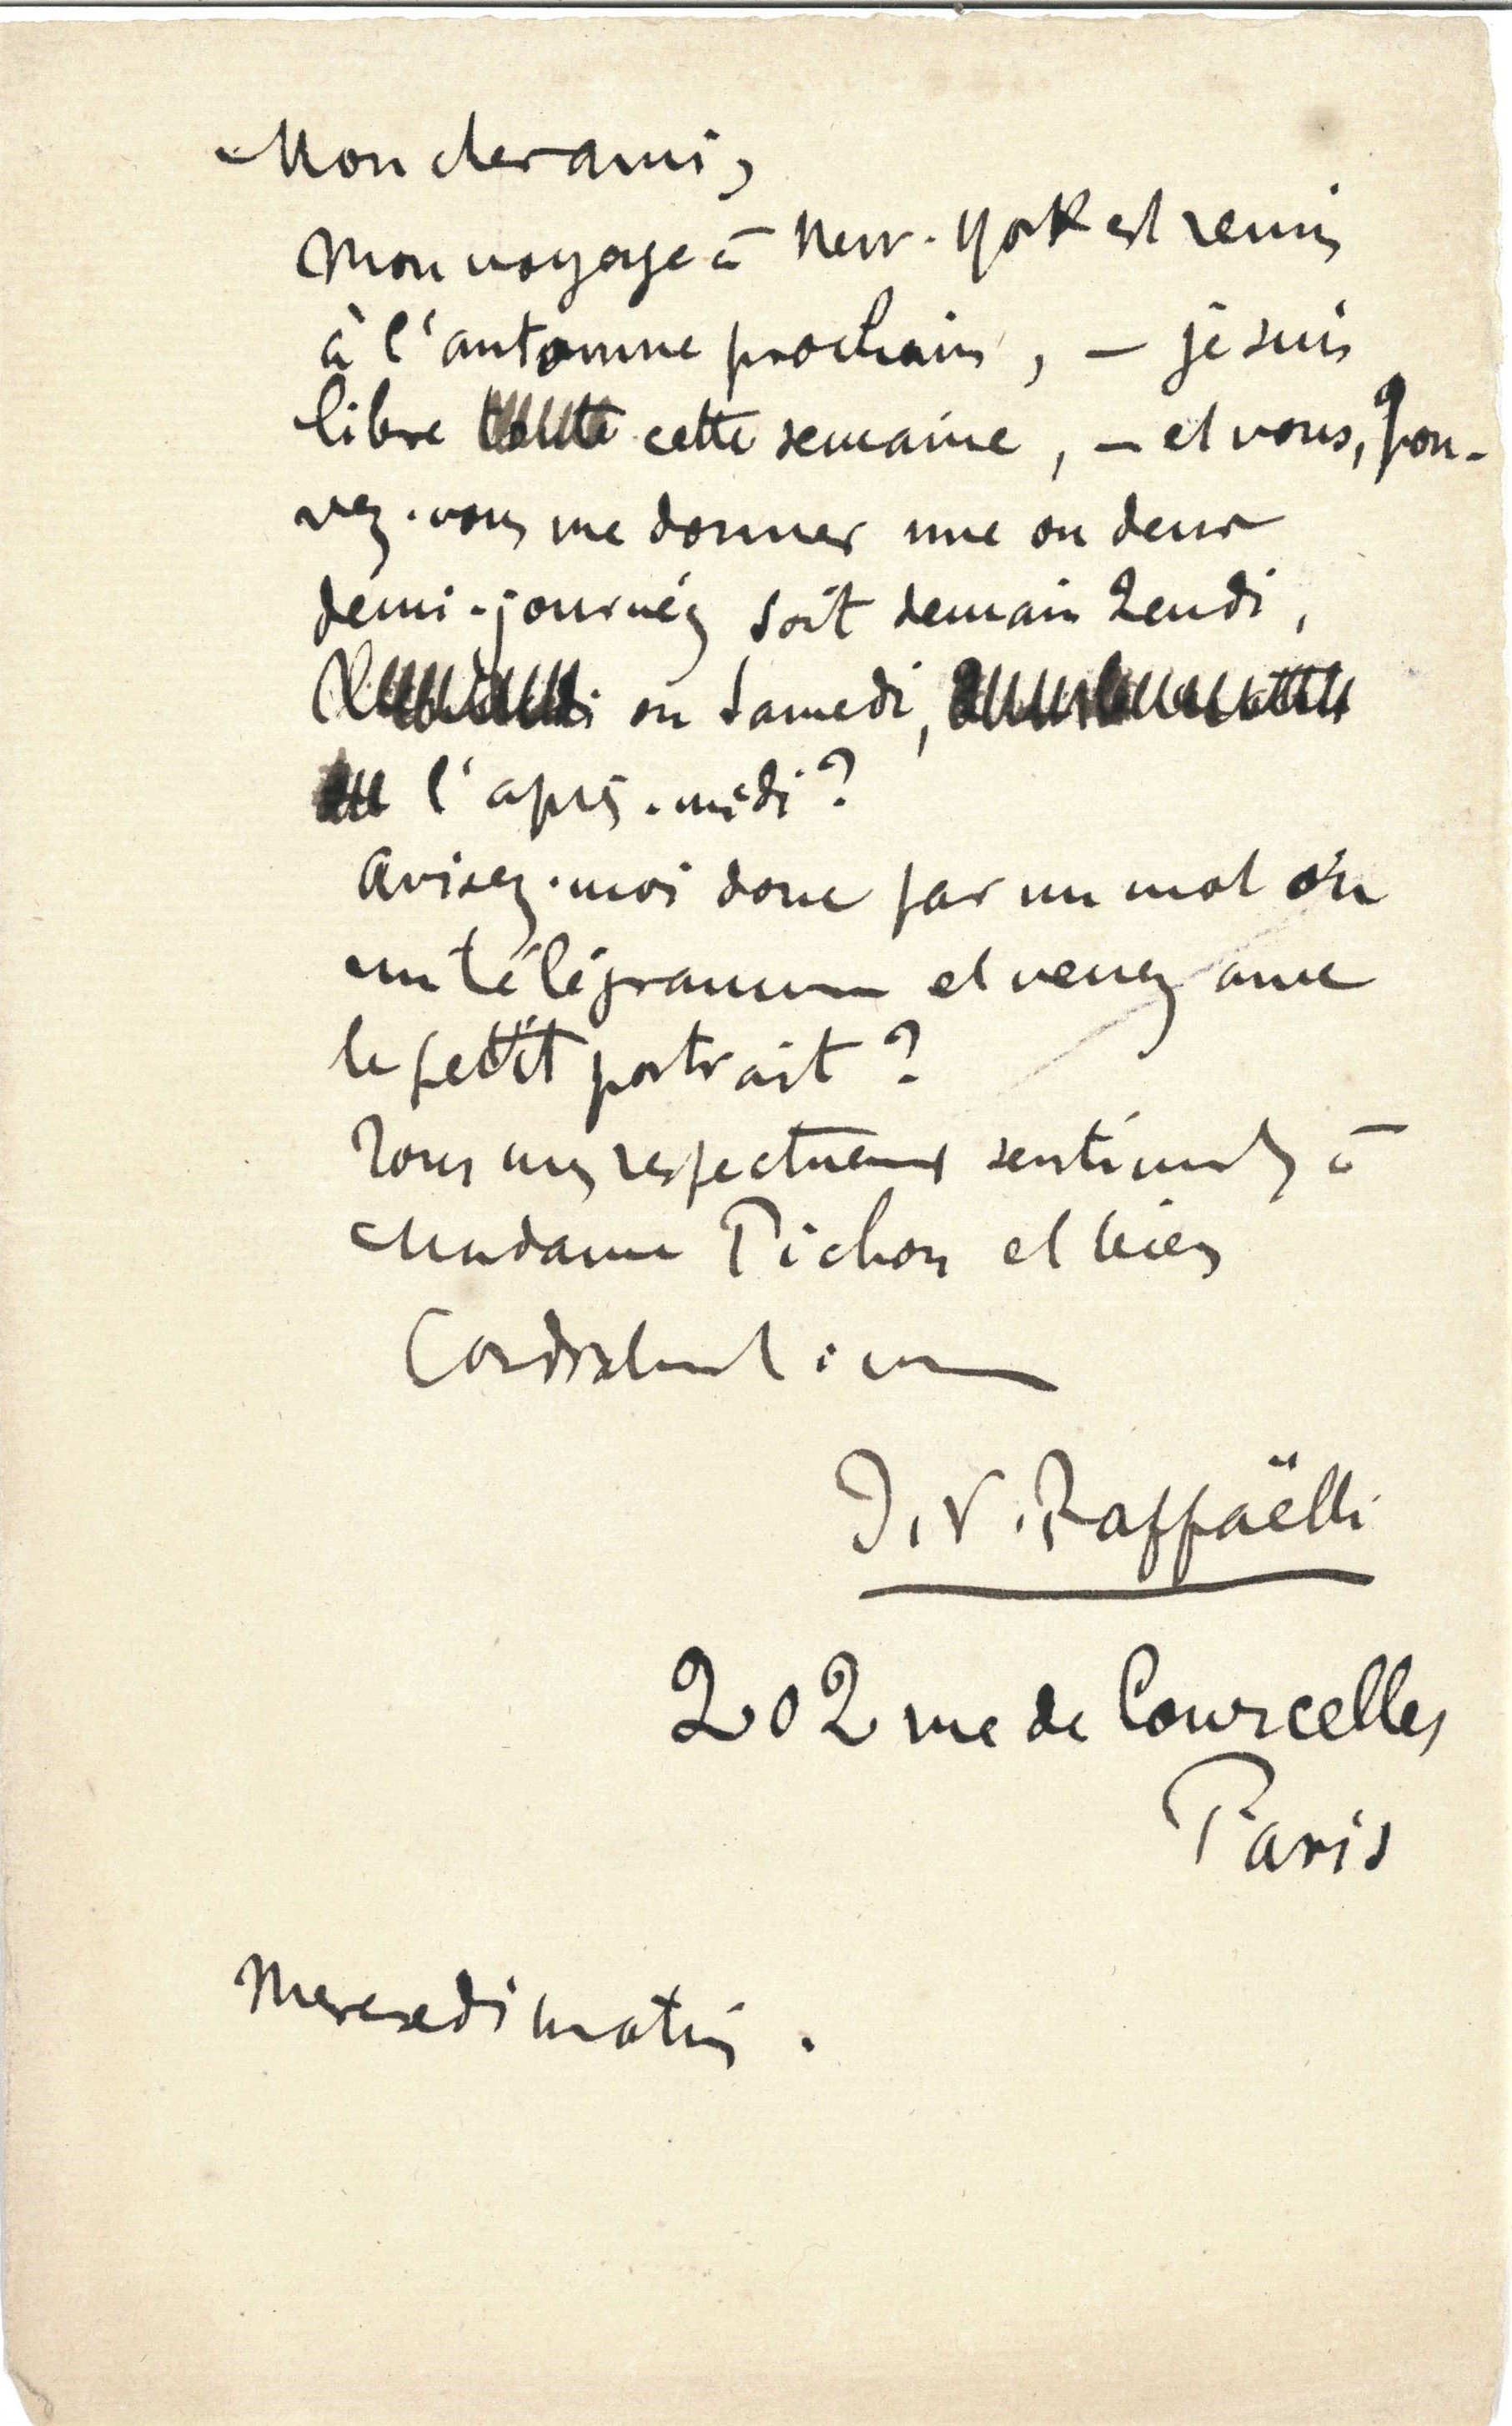 Mon cher ami,
Mon voyage à New-York est remis
à l'automne prochain, — je suis
libre toute cette semaine, — et vous, pou-
vez-vous me donner une ou deux
demi-journées soit demain Jeudi,
ou Samedi,
l'après-midi?
Avisez-moi donc par un mot ou
un télégramme et venez avec
le petit portrait?
Tous mes respectueux sentiments à
Madame Pichon et bien
Cordialement
J.F. Raffaëlli
202 rue de Courcelles
Paris
Mercredi matin.